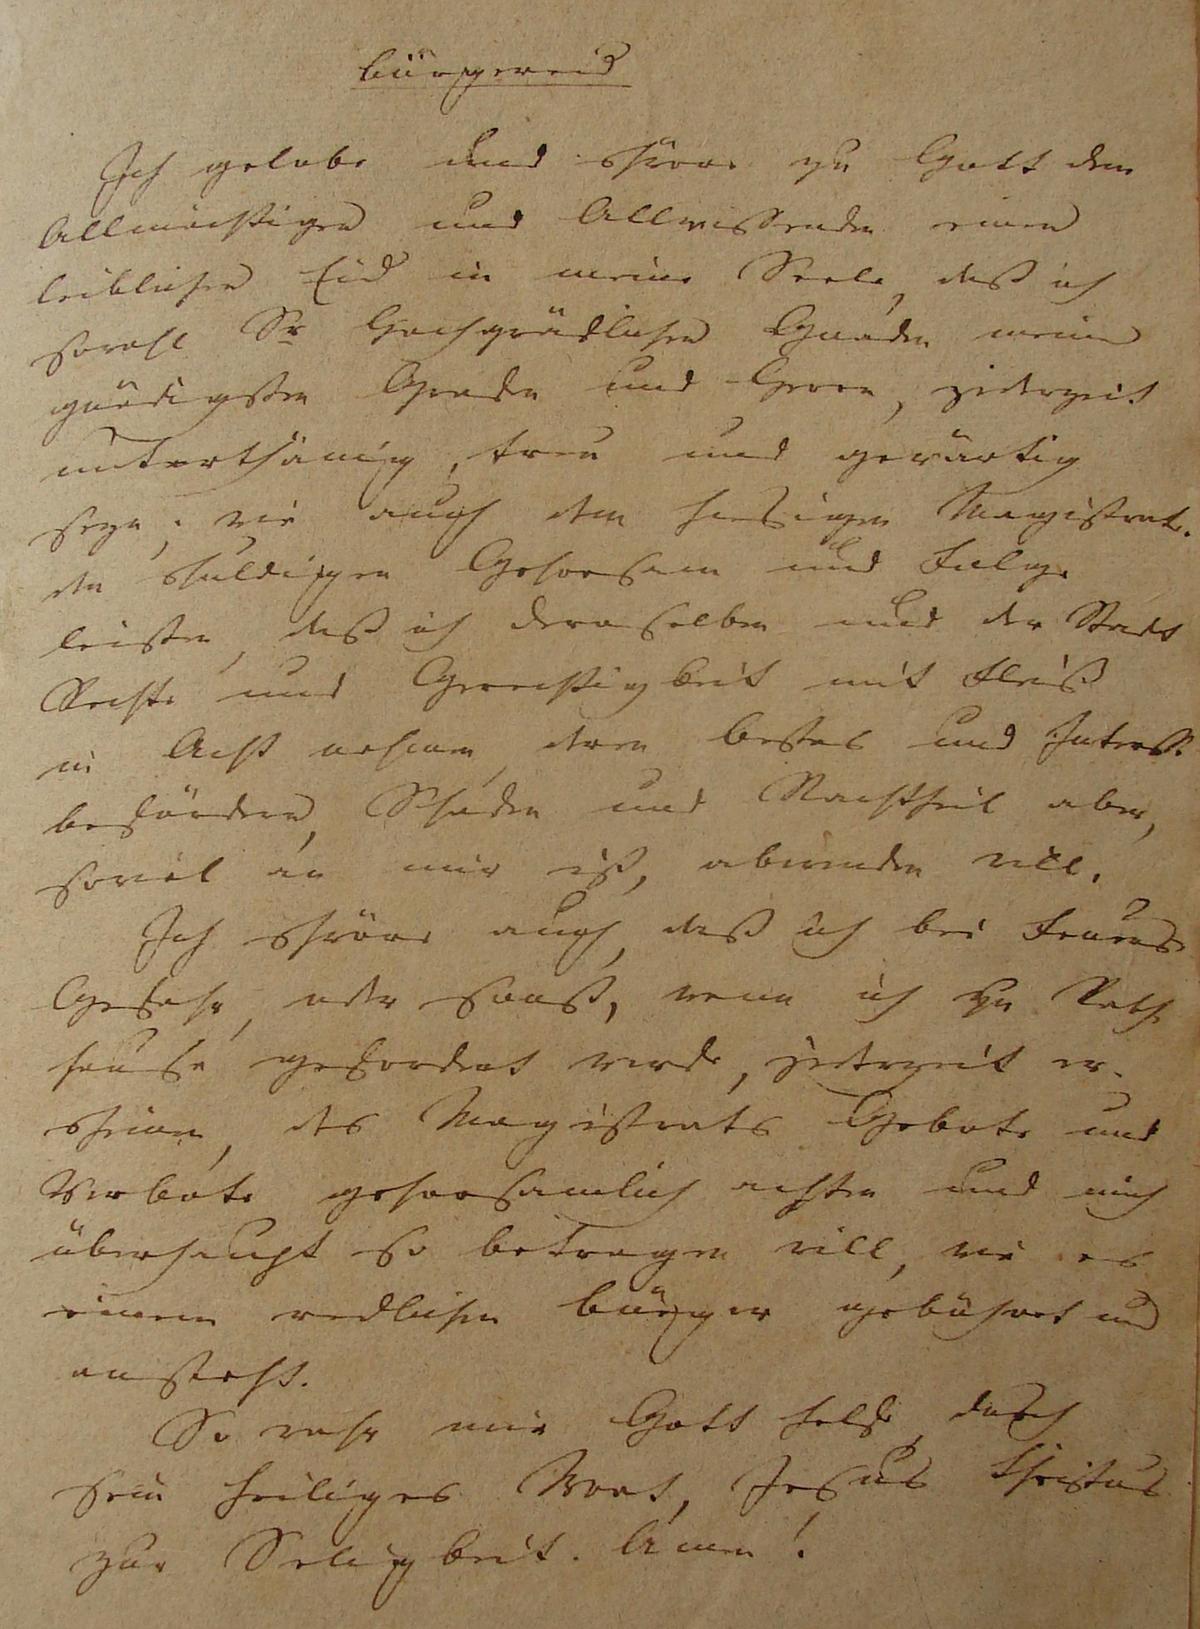 Bürgereid
Ich gelobe und schwöre zu Gott dem
Allmächtigen und Allwissenden einen
leiblichen Eid in meine Seele, daß ich
sowohl Sr Hochgräflichen Gnaden meinen
gnädigsten Grafen und Herrn, jederzeit
unterthänig, treu und gewärtig
seyn, wie auch dem hiesigen Magistrate
den schuldigen Gehorsam und Folge
leisten, daß ich deroselben und der Stadt
Rechte und Gerechtigkeit mit Fleiß
in Acht nehmen, deren Bestes und Interesse
befördern, Schaden und Nachtheil aber,
soviel an mir ist, abwenden will.
Ich schwöre auch, daß ich bei Feuers
Gefahr, oder sonst, wenn ich zu Rath
hause gefordert werde, jederzeit er-
scheinen, des Magistrats Gebote und
Verbote gehorsamlich achten und mich
überhaupt so betragen will, wie es
einem redlichen Bürger gebühret und
ansteht.
So wahr mir Gott helfe, durch
sein heiliges Wort, Jesus Christus
zur Seligkeit. Amen!